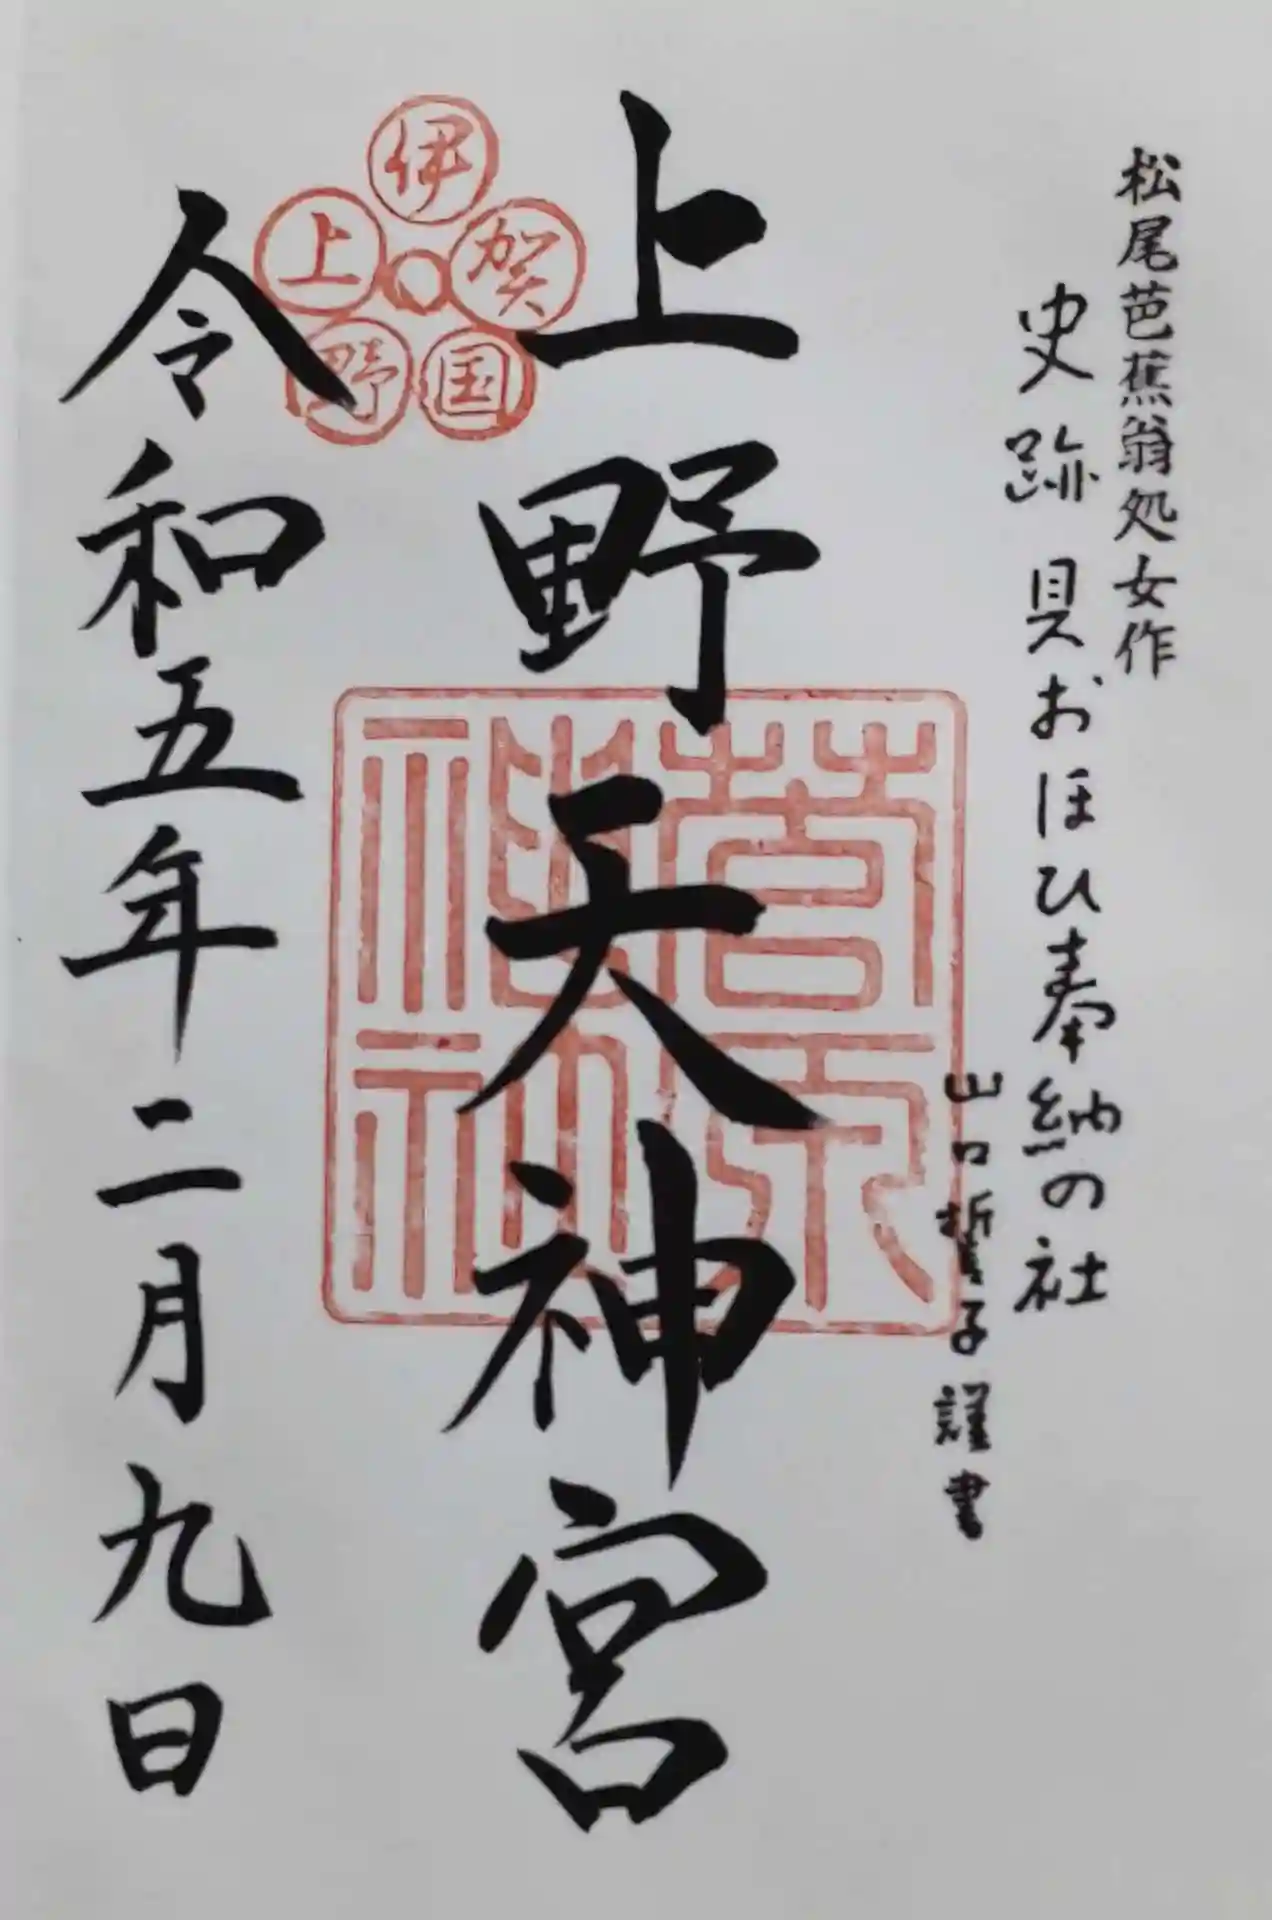 松尾芭蕉翁処女作
史跡 貝おほひ奉納の社
山口誓子謹書
上野天神宮
伊賀国上野
菅原神社
令和五年二月九日